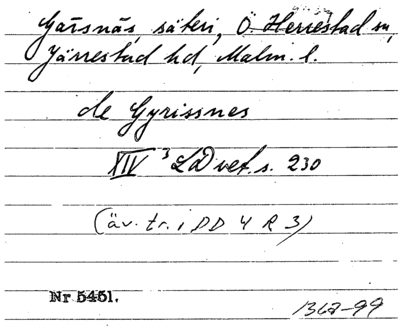 Gärsnäs, säteri, Ö. Herrestad sn,
Järrestad hd, Malm. l.
de Gyrissnes
XIV 3 LD vet. s. 230
(äv. tr. i DD 4 R 3)
Nr 5451.
1367-99